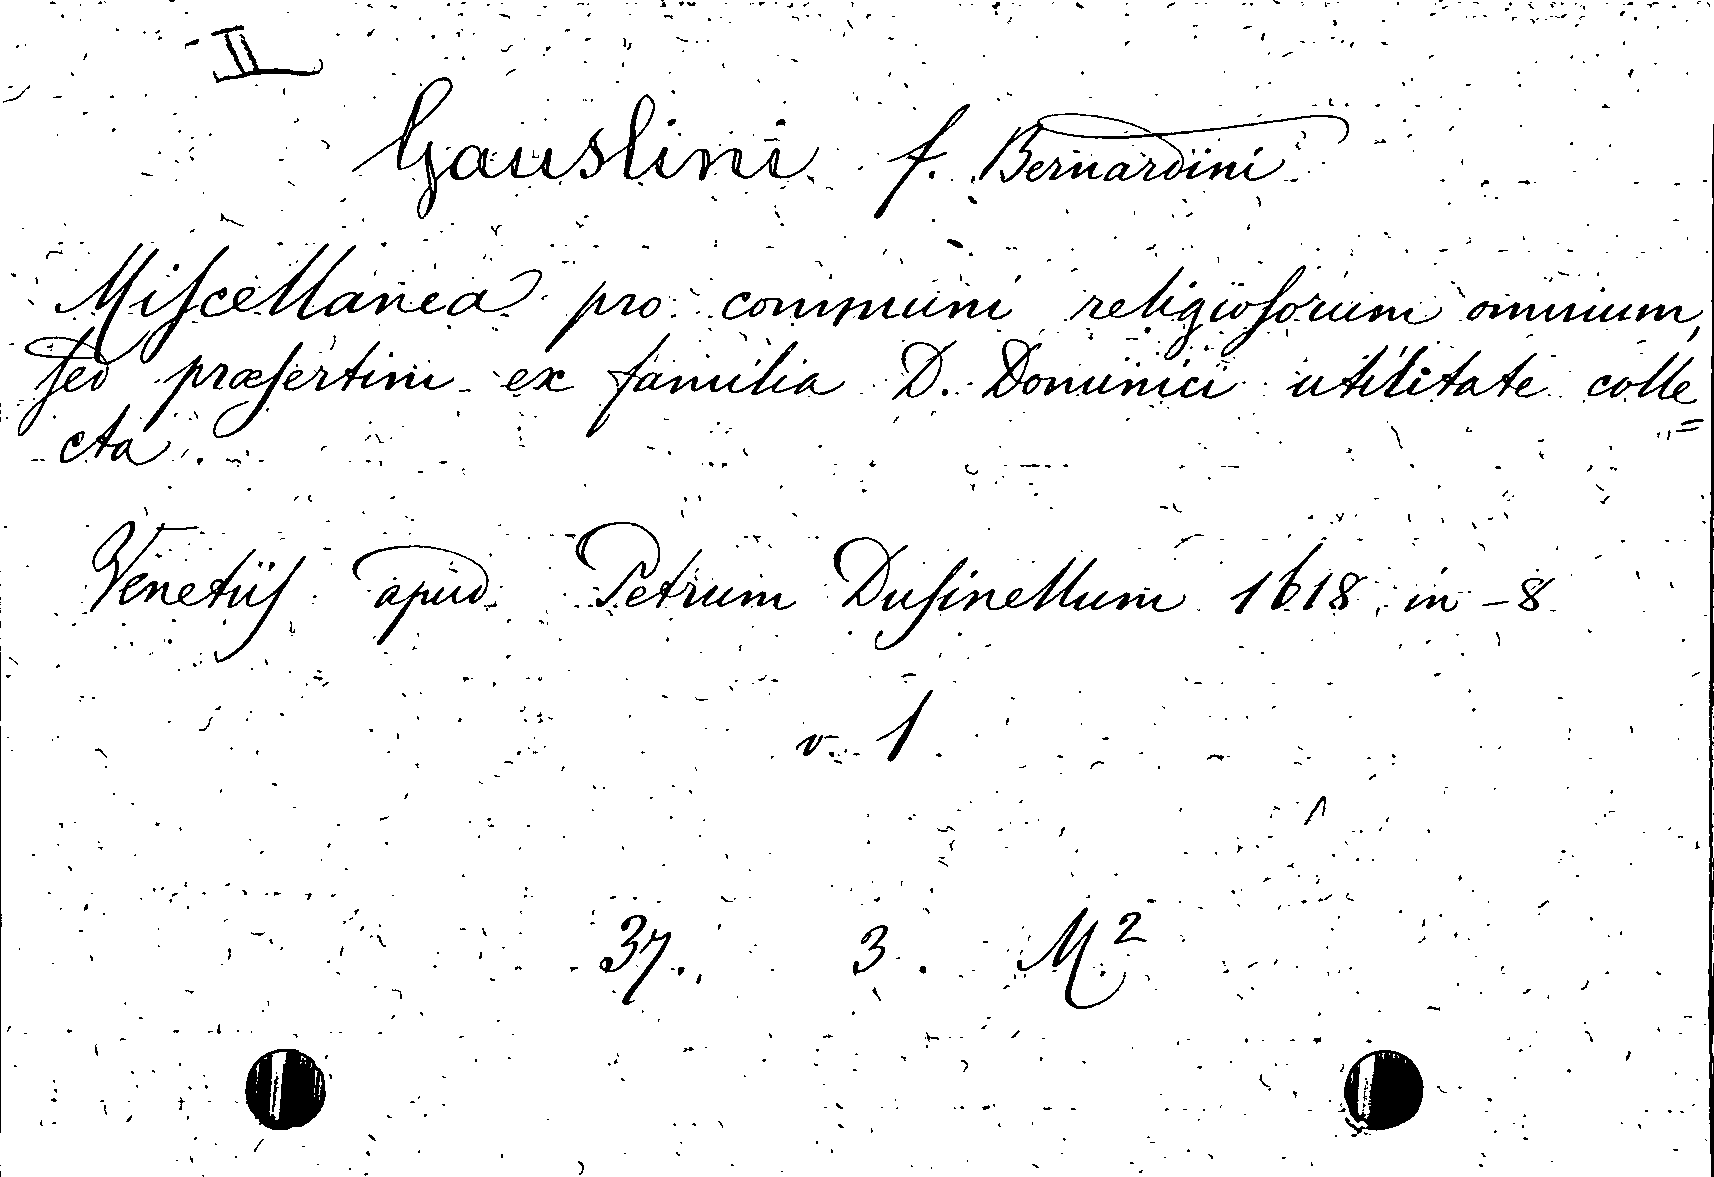 II
Gauslini f. Bernardini
Miſcellanea pro communi religioſorum omnium,
ſed præſertim ex familia D. Dominici utilitate colle=
cta.
Venetiiſ apud Petrum Duſinellum 1618 in-8
v. 1
37. 3. M²